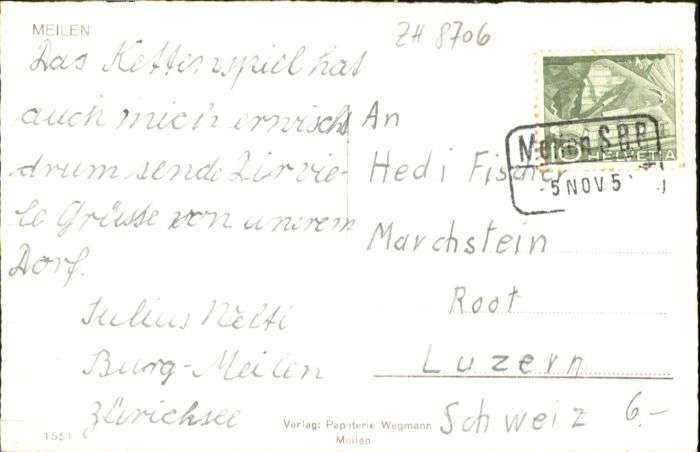 MEILEN
ZH 8706
Das Kettenspiel hat
auch mich erwischt
drum sende Dir vie-
le Grüsse von unerem
Dorf.
Julius
Burg-Meilen
Zürichsee
1551
An
Hedi Fischer
Marchstein
Root
Luzern
Schweiz 6.-
HELVETIA
Meilen S.B.B.
-5 NOV 5
Verlag: Papeterie Wegmann
Meilen